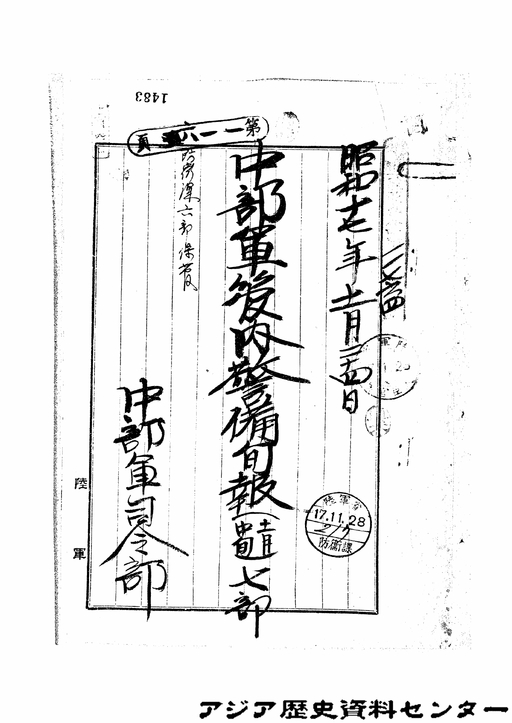 1483
第一一六頁
昭和十七年十一月二十四日
中部軍管内警備旬報(十一月中旬)七部
防衛課六部保管
中部軍司令部
陸軍
17.11.28
防衛課
アジア歴史資料センター